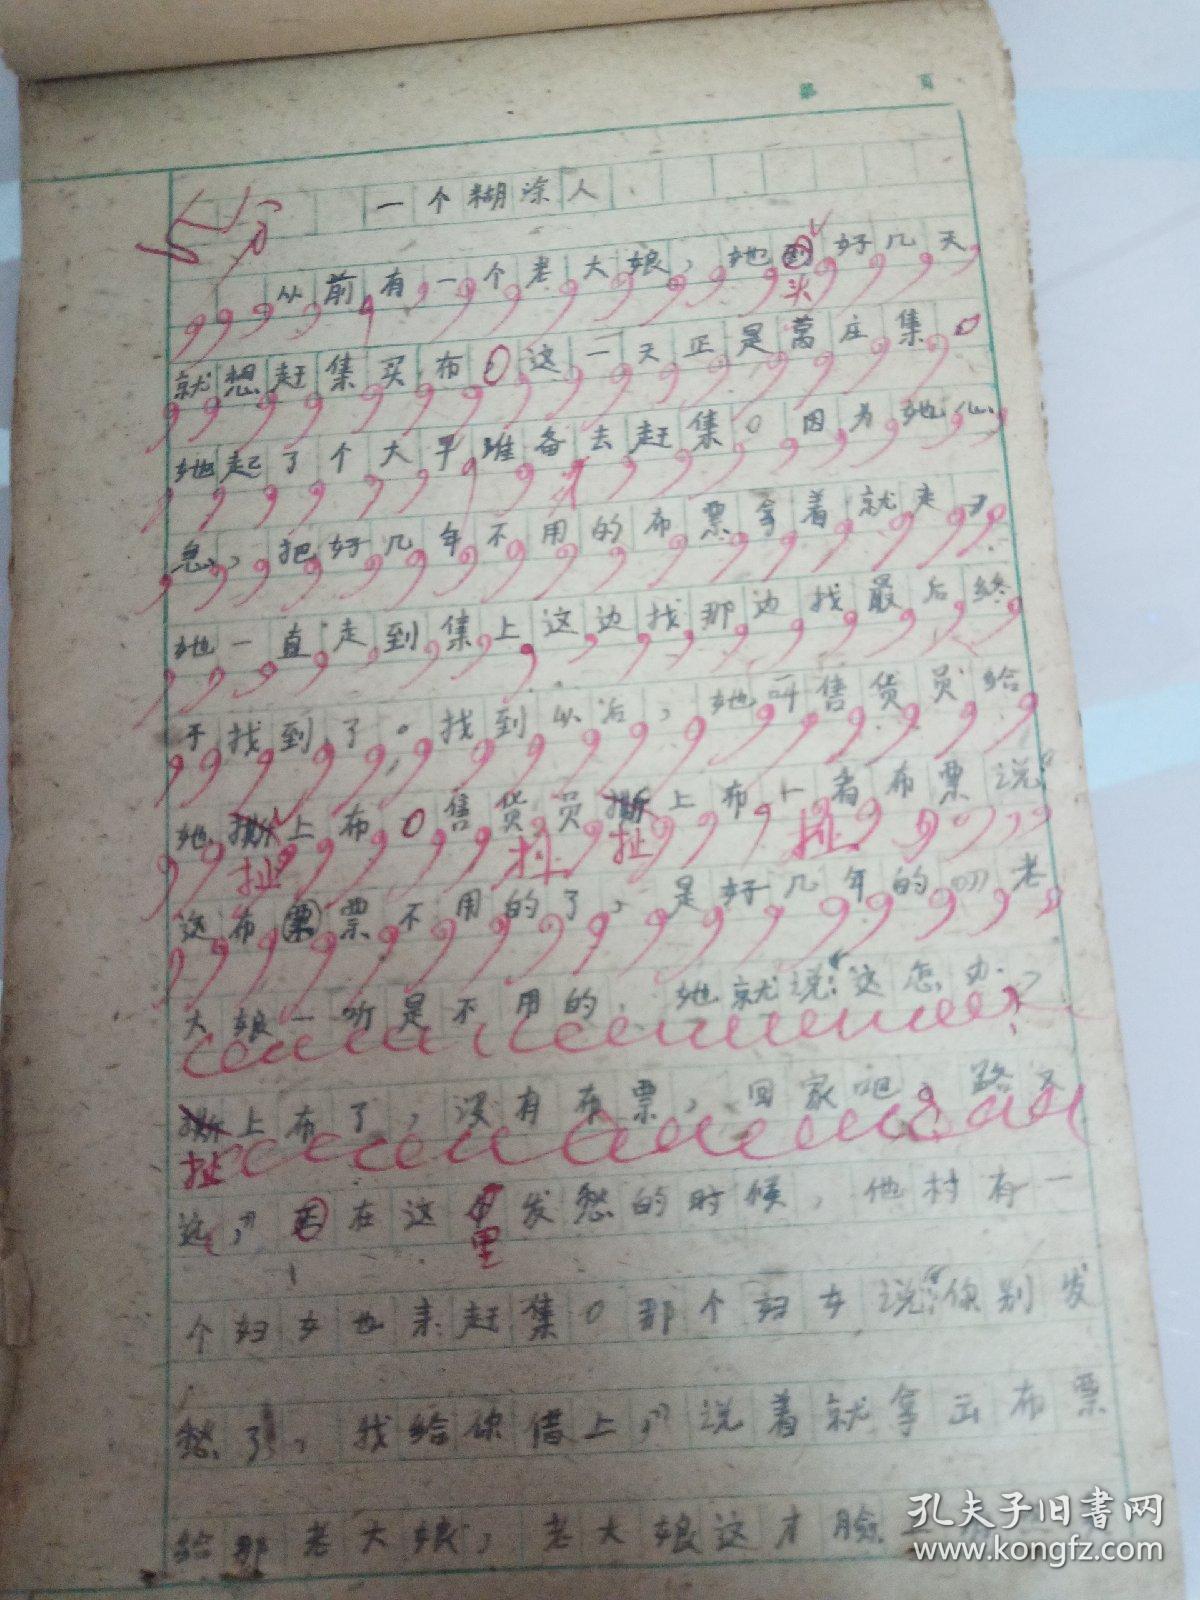 第 页
一个糊涂人
从前有一个老大娘，她头好几天
就想赶集买布。这一天正是萬庄集。
她起了个大早准备去赶集。因为她心
急，把好几年不用的布票拿着就走了
她一直走到集上这边找那边找最后终
于找到了。找到以后，她叫售货员给
她扯上布。售货员扯上布一看布票说“
这布票不用的了，是好几年的”老
大娘一听是不用的，她就说：“这怎办？
扯上布了，没有布票，回家吧，路又
远，”在这里发愁的时候，他村有一
个妇女也来赶集。那个妇女说：“你别发
愁了，我给你借上，”说着就拿出布票
给那老大娘，老大娘这才脸一
孔夫子旧书网
www.kongfz.com